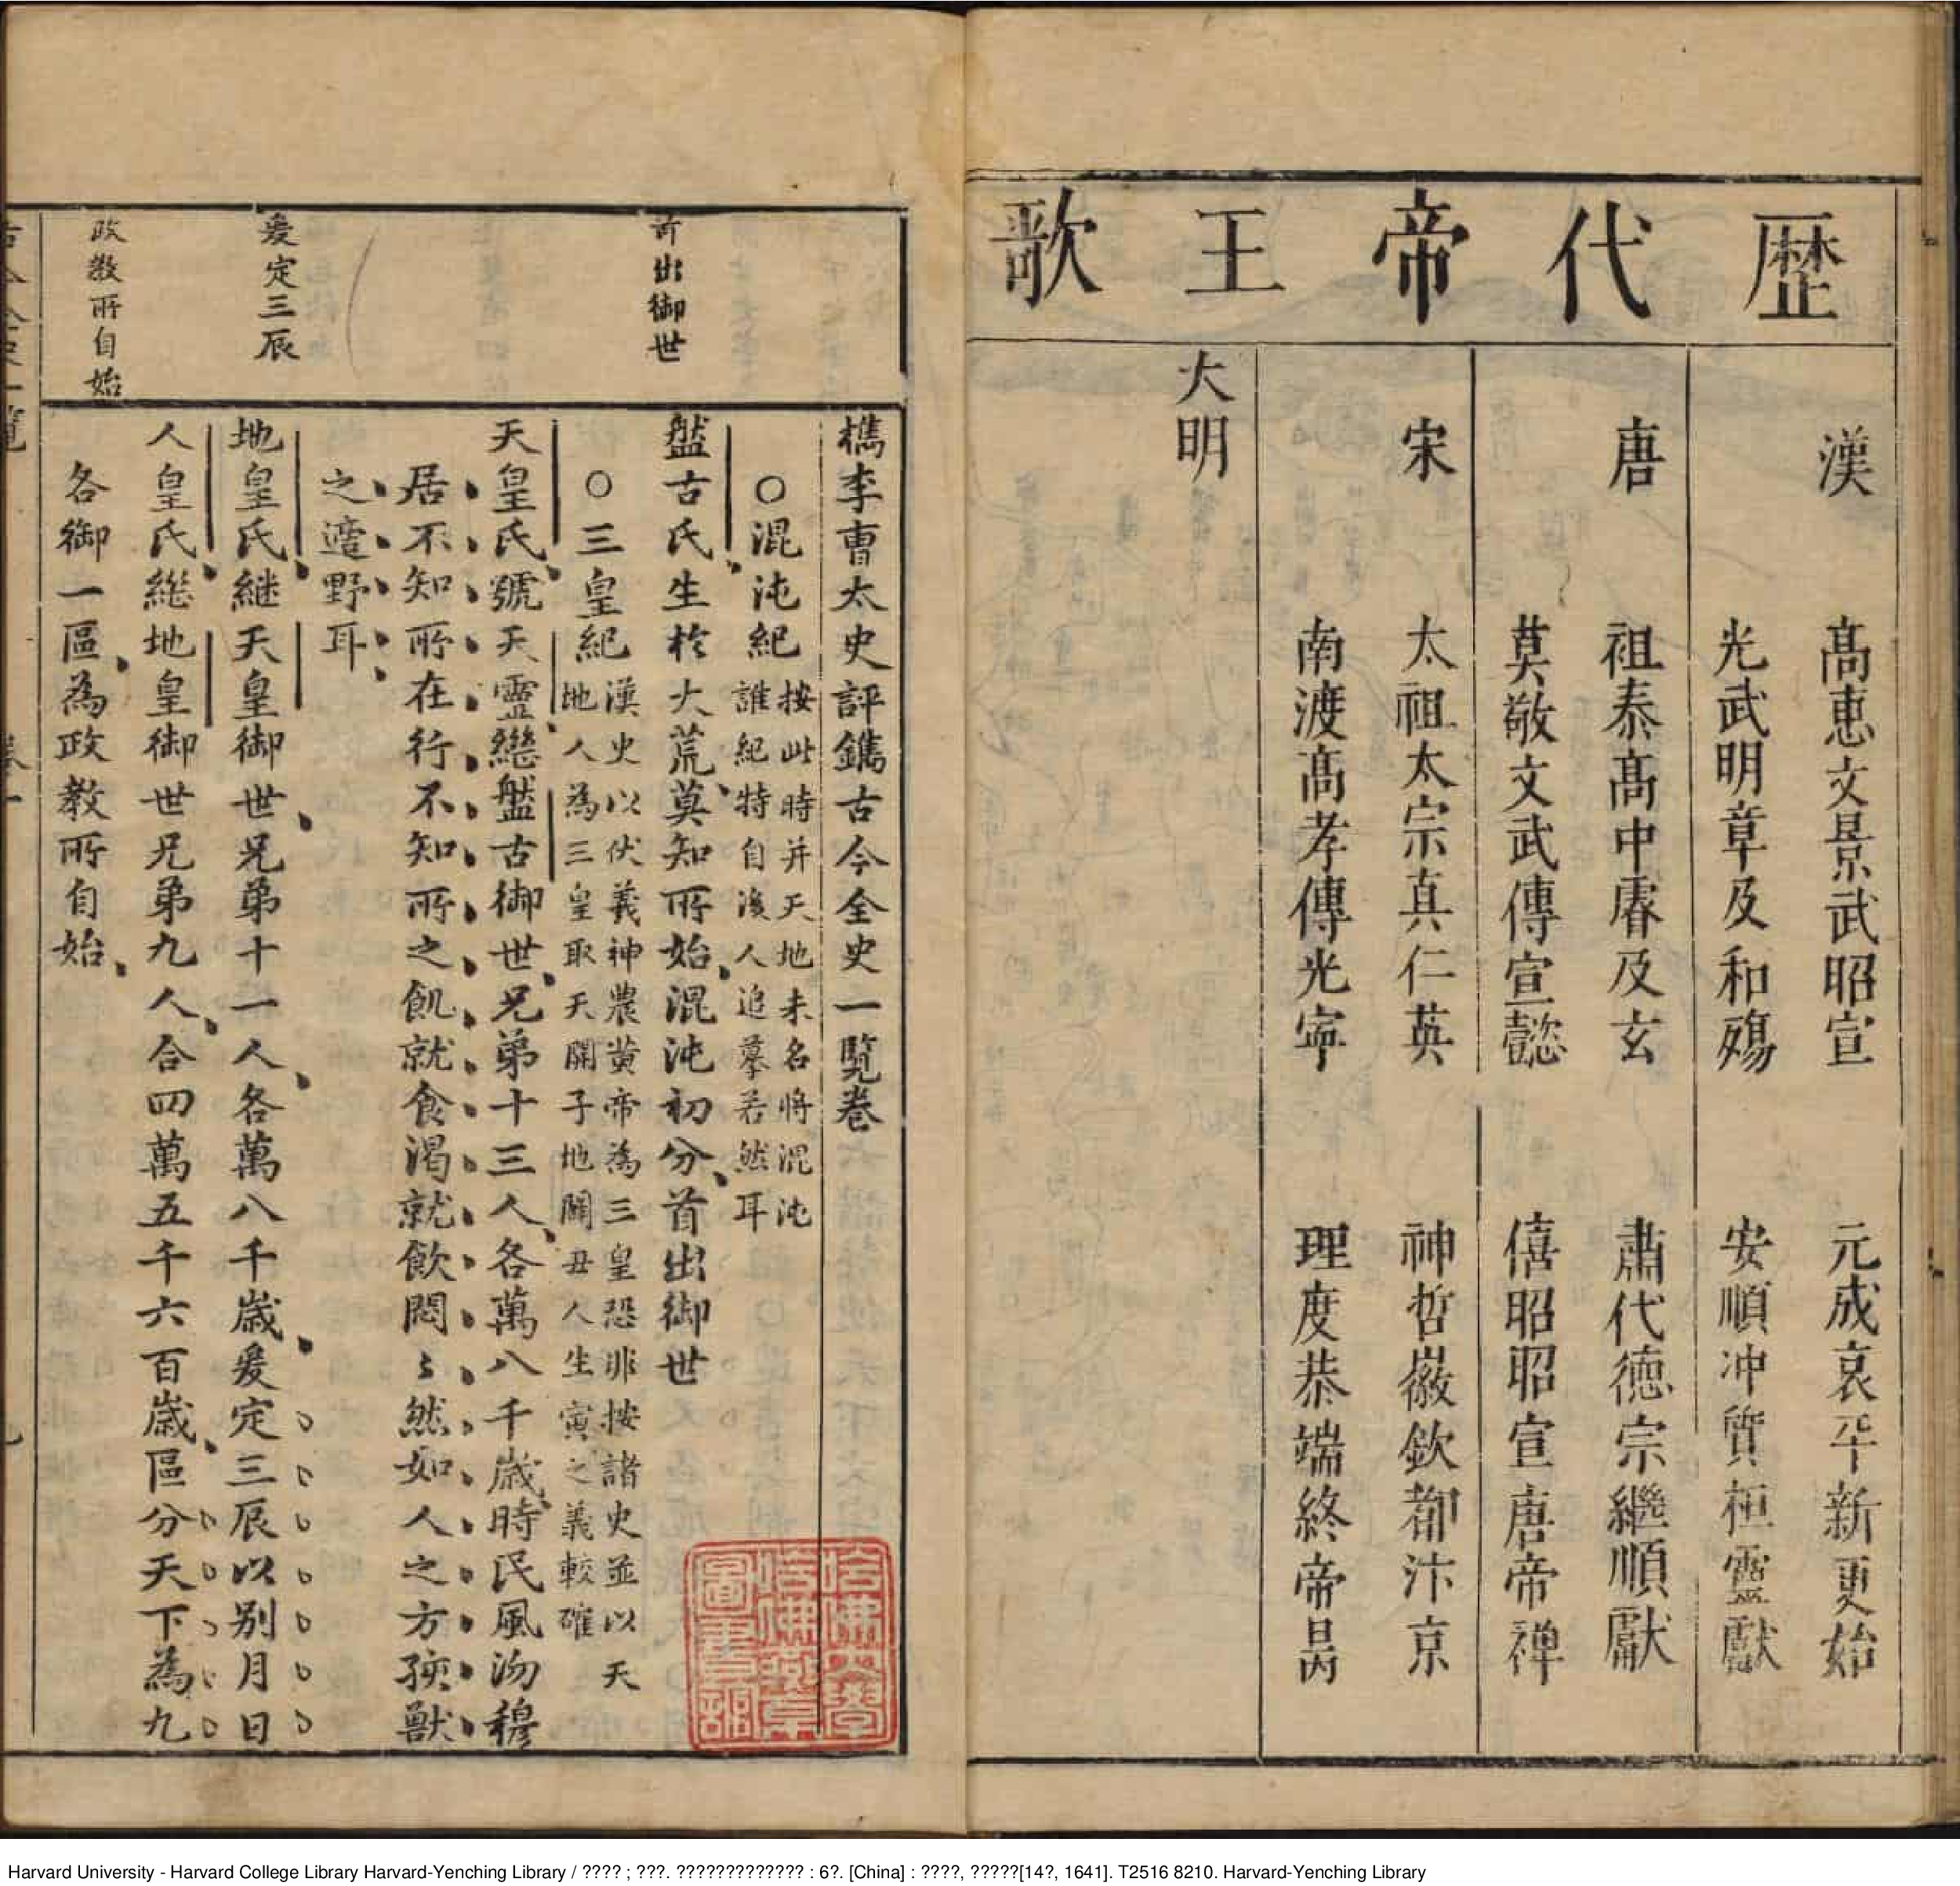 歷代帝王歌
漢 高惠文景武昭宣 元成哀平新更始
光武明章及和殤 安順冲質桓靈獻
唐 祖泰高中睿及玄 肅代德宗繼順獻
莫敬文武傳宣懿 僖昭昭宣唐帝禪
宋 太祖太宗真仁英 神哲徽欽都汴京
南渡高孝傳光寧 理度恭端終帝昺
大明
首出御世
爰定三辰
政教所自始
檇李曹太史評鐫古今全史一覽卷
○混沌紀 按此時并天地未名將混沌
誰紀特自後人追摹若然耳
盤古氏生於大荒莫知所始混沌初分首出御世
○三皇紀 漢史以伏羲神農黃帝為三皇恐非按諸史並以天
地人為三皇取天開子地闢丑人生寅之義較確
天皇氏號天靈繼盤古御世兄弟十三人各萬八千歲時民風沕穆
居不知所在行不知所之飢就食渴就飲悶〻然如人之方孩獸
之適野耳
地皇氏継天皇御世兄弟十一人各萬八千歲爰定三辰以别月日
人皇氏継地皇御世兄弟九人合四萬五千六百歲區分天下為九
各御一區為政教所自始
哈佛大學
哈佛燕京
圖書館
Harvard University - Harvard College Library Harvard-Yenching Library / ???? ; ???. ????????????? : 6?. [China] : ????, ?????[14?, 1641]. T2516 8210. Harvard-Yenching Library